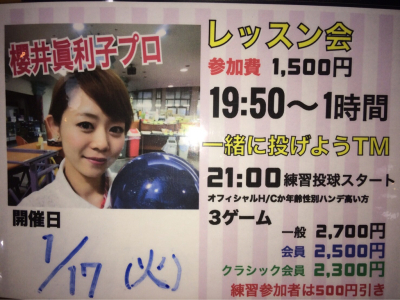 櫻井眞利子プロ
開催日
1/17(火)
レッスン会
参加費 1,500円
19:50〜1時間
一緒に投げようTM
21:00練習投球スタート
オフィシャルH/Cか年齢性別ハンデ高い方
3ゲーム
一般 2,700円
会員 2,500円
クラシック会員 2,300円
練習参加者は500円引き